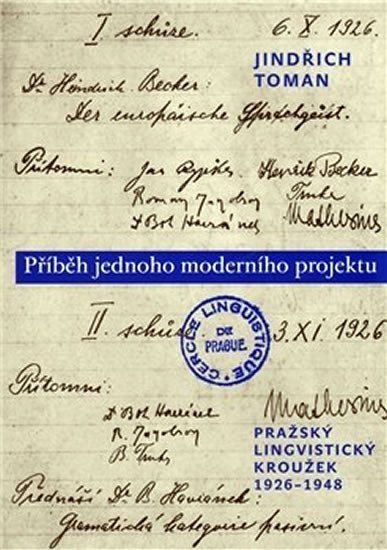 I schůze. 6. X. 1926.
JINDŘICH
TOMAN
Dr. Heindrich Becker:
Der europäische Sprachgeist.
Přítomni: Jan Rypka Henrik Becker
Roman Jagobson Trnka
Dr Boh Havránek Mathesius
Příběh jednoho moderního projektu
II. schůze 3. XI. 1926
CERCLE LINGUISTIQUE
DE
PRAGUE.
Přítomni: Mathesius
Dr Boh Havránek
R. Jagobson
B. Trnka
PRAŽSKÝ
LINGVISTICKÝ
KROUŽEK
1926–1948
Přednáší Dr. B. Havránek:
Gramatická kategorie pasivní.